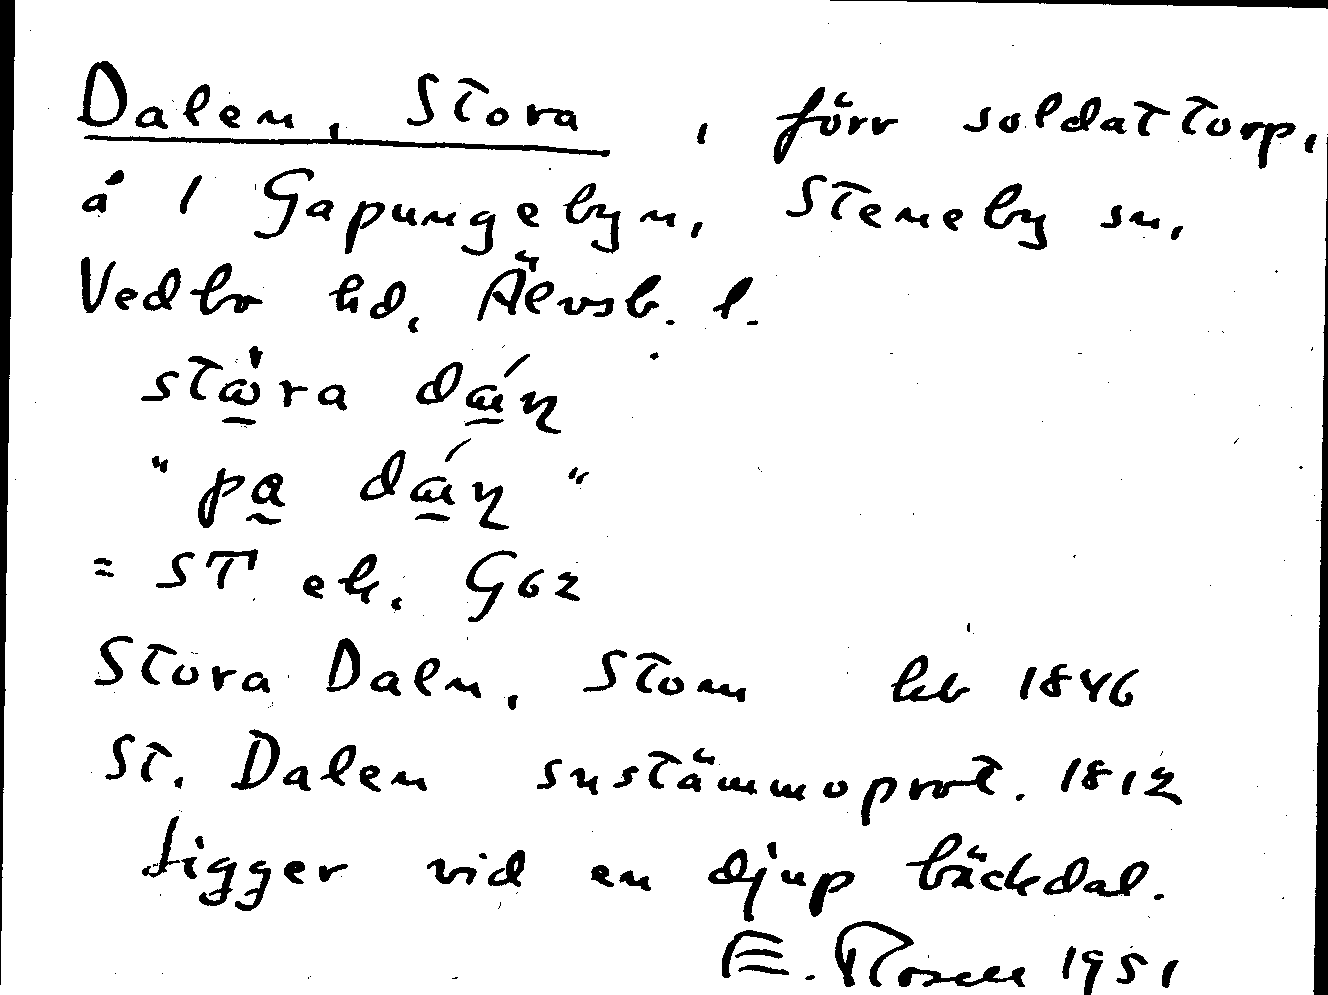 Dalen, Stora, förr soldattorp,
å 1 Gapungebyn, Steneby sn,
Vedbo hd, Älvsb. l.
stɷ̀ra dán
"pa dán"
= ST ek. G62
Stora Daln, Stom kb 1846
St. Dalen snstämmoprot. 1812
Ligger vid en djup bäckdal.
E. Rosell 1951